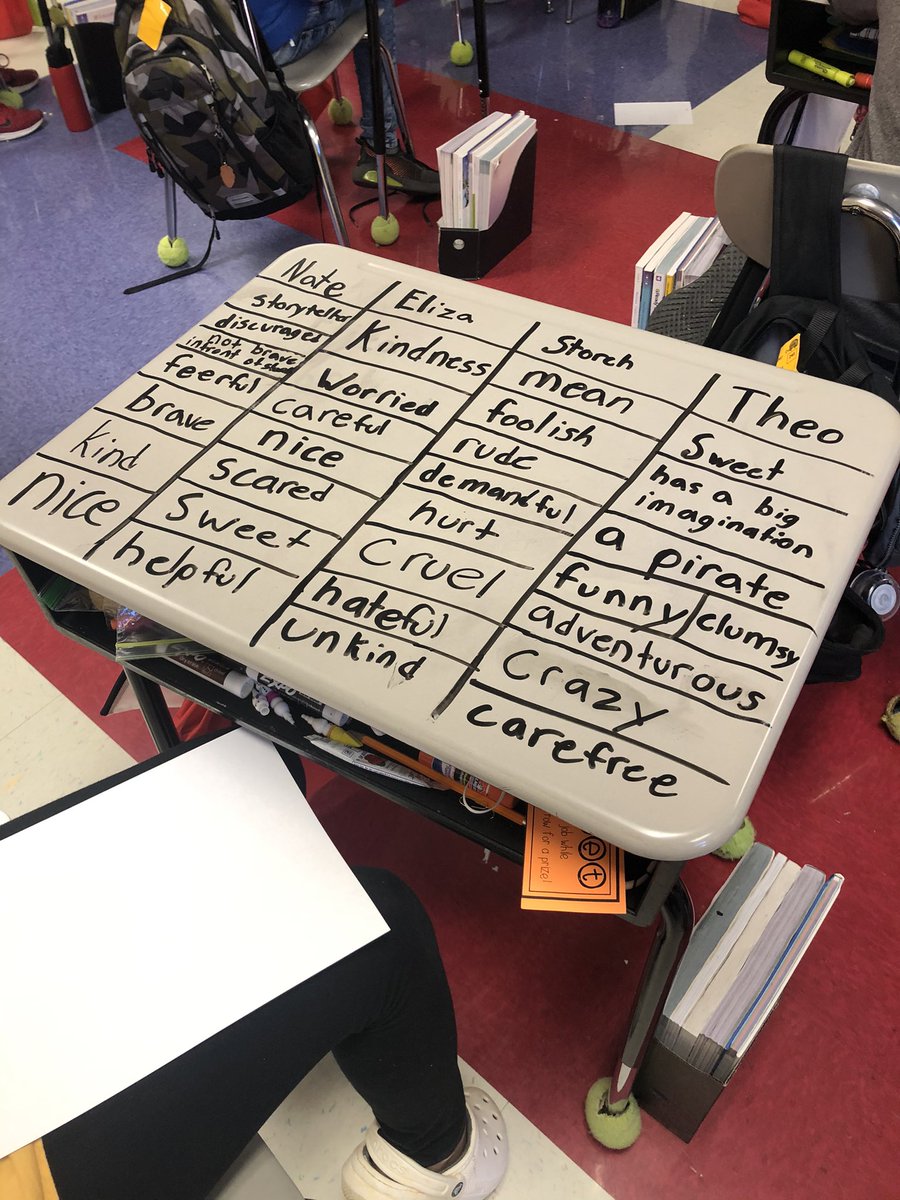 Nate
storyteller
discurages
not brave
infront of
feerful
brave
Kind
nice
Eliza
Kindness
Worried
careful
nice
scared
Sweet
helpful
Storch
mean
foolish
rude
demandful
hurt
Cruel
hateful
unkind
Theo
Sweet
has a big
imagination
a pirate
funny
clumsy
adventurous
Crazy
carefree
EXPO
et
job while
row for a prize!